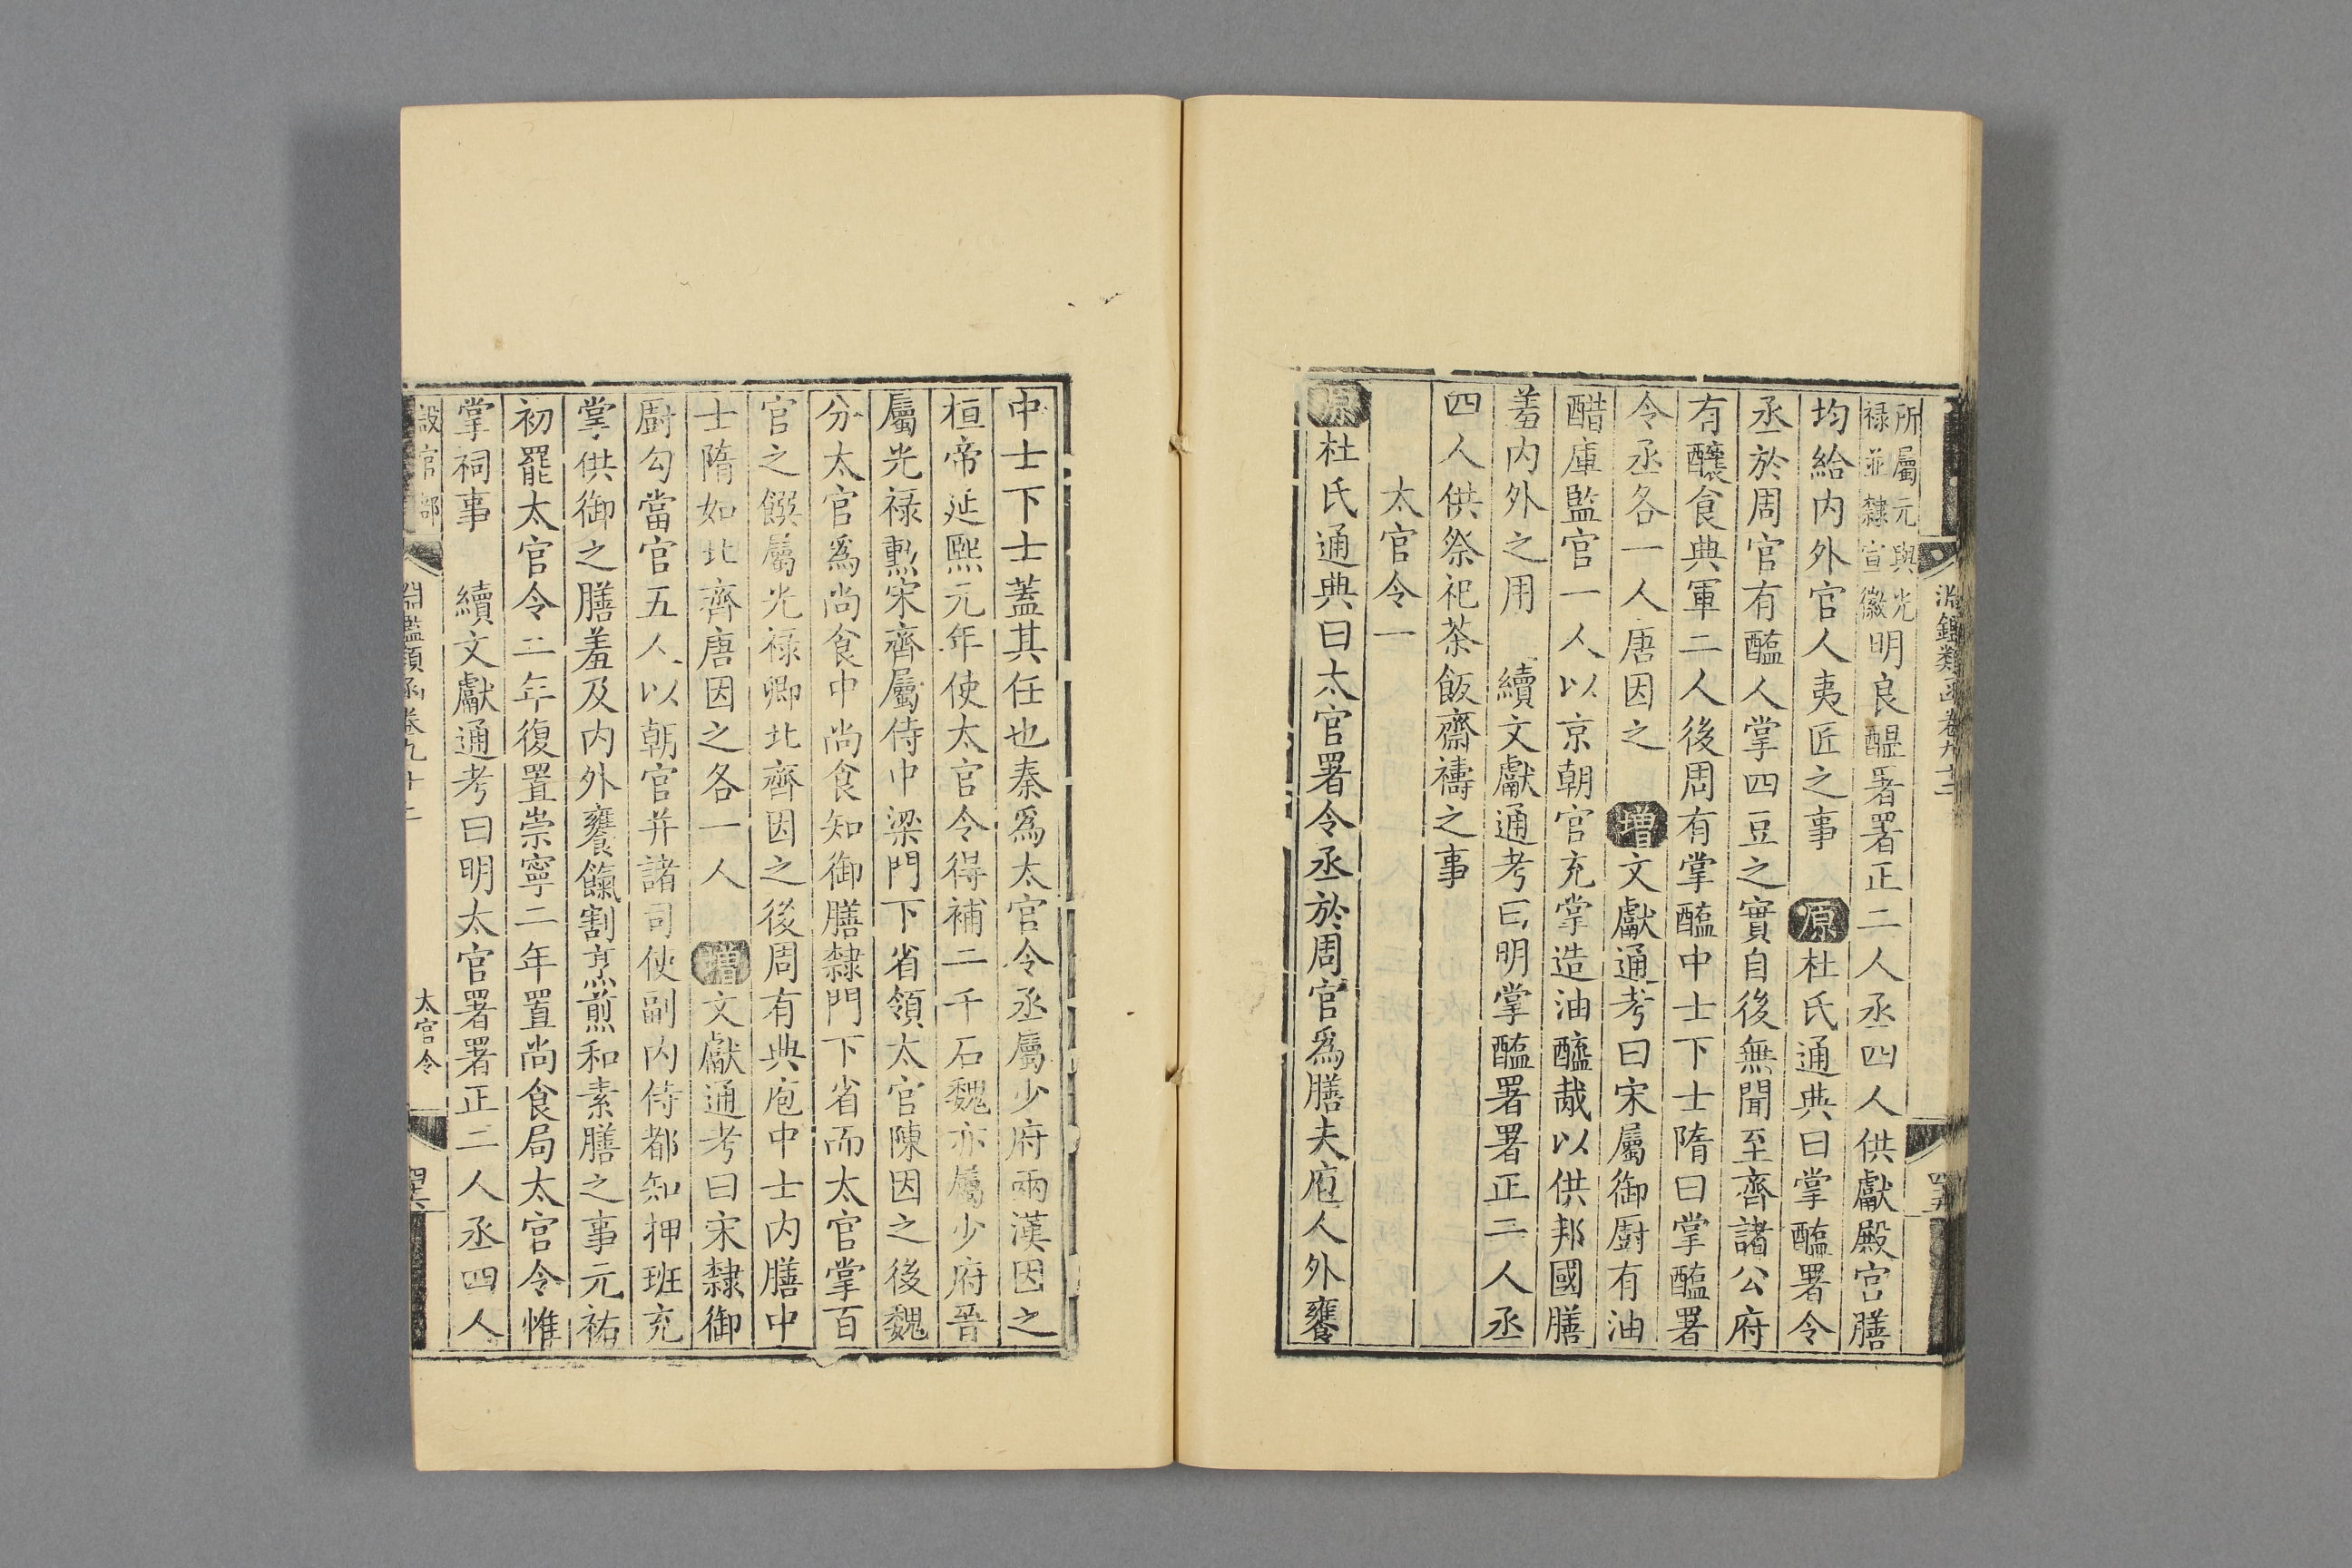 淵鑑類函卷九十二
四十五
所屬元與光
禄並隸宣徽明良醖署署正二人丞四人供獻殿宫膳
均給内外官人夷匠之事 原杜氏通典曰掌醢署令
丞於周官有醢人掌四豆之實自後無聞至齊諸公府
有釀食典軍二人後周有掌醢中士下士隋曰掌醢署
令丞各一人唐因之 增文獻通考曰宋屬御厨有油
醋庫監官一人以京朝官充掌造油醯菆以供邦國膳
羞内外之用 續文獻通考曰明掌醢署署正二人丞
四人供祭祀茶飯齋禱之事
太官令一
原杜氏通典曰太官署令丞於周官爲膳夫庖人外饔
中士下士蓋其任也秦爲太官令丞屬少府兩漢因之
桓帝延熙元年使太官令得補二千石魏亦屬少府晉
屬光禄勲宋齊屬侍中梁門下省領太官陳因之後魏
分太官爲尚食中尚食知御膳隸門下省而太官掌百
官之饌屬光禄卿北齊因之後周有典庖中士内膳中
士隋如北齊唐因之各一人 增文獻通考曰宋隸御
厨勾當官五人以朝官并諸司使副内侍都知押班充
掌供御之膳羞及内外饔餼割烹煎和素膳之事元祐
初罷太官令二年復置崇寧二年置尚食局太官令惟
掌祠事 續文獻通考曰明太官署署正二人丞四人
設官部
淵鑑類函卷九十二
太官令
四十六